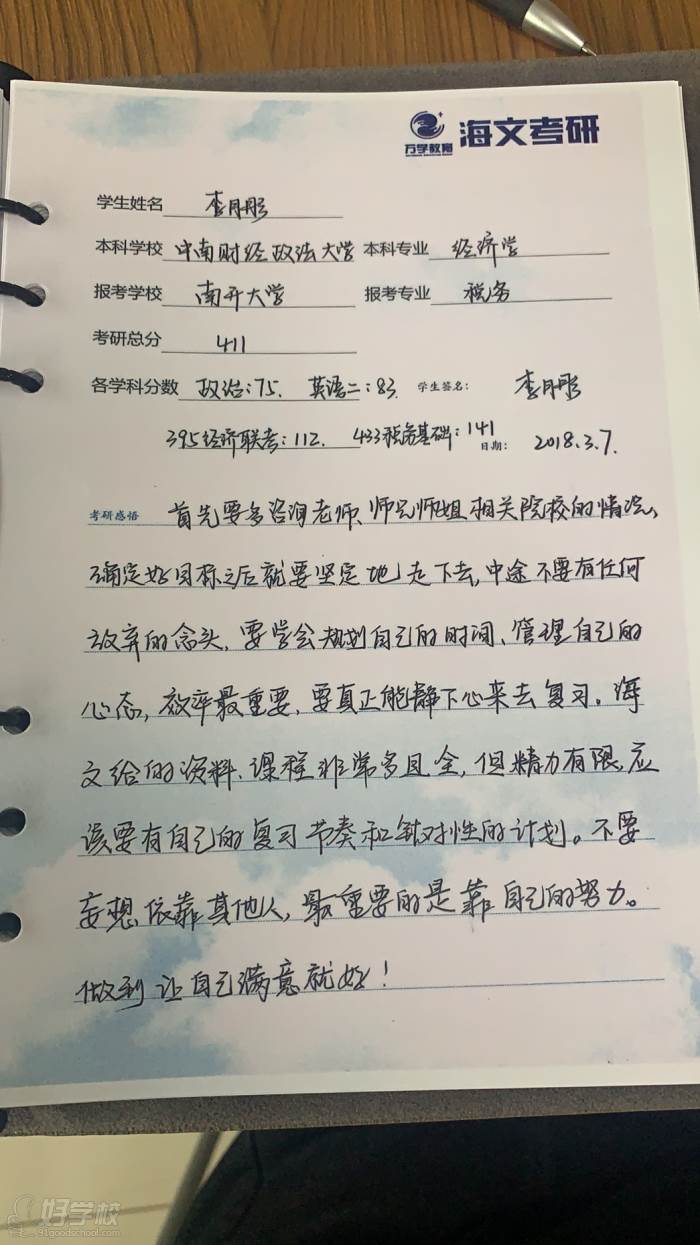 万学教育 海文考研
学生姓名 李月彤
本科学校 中南财经政法大学 本科专业 经济学
报考学校 南开大学 报考专业 税务
考研总分 411
各学科分数 政治:75. 英语二:83. 学生签名: 李月彤
395经济联考:112. 433税务基础:141 日期: 2018.3.7.
考研感悟 首先要多咨询老师、师兄师姐相关院校的情况,
确定好目标之后就要坚定地走下去,中途不要有任何
放弃的念头,要学会规划自己的时间、管理自己的
心态,效率最重要,要真正能静下心来去复习。海
文给的资料、课程非常多且全,但精力有限,应
该要有自己的复习节奏和针对性的计划。不要
妄想依靠其他人,最重要的是靠自己的努力。
做到让自己满意就好!
好学校
91goodschool.com